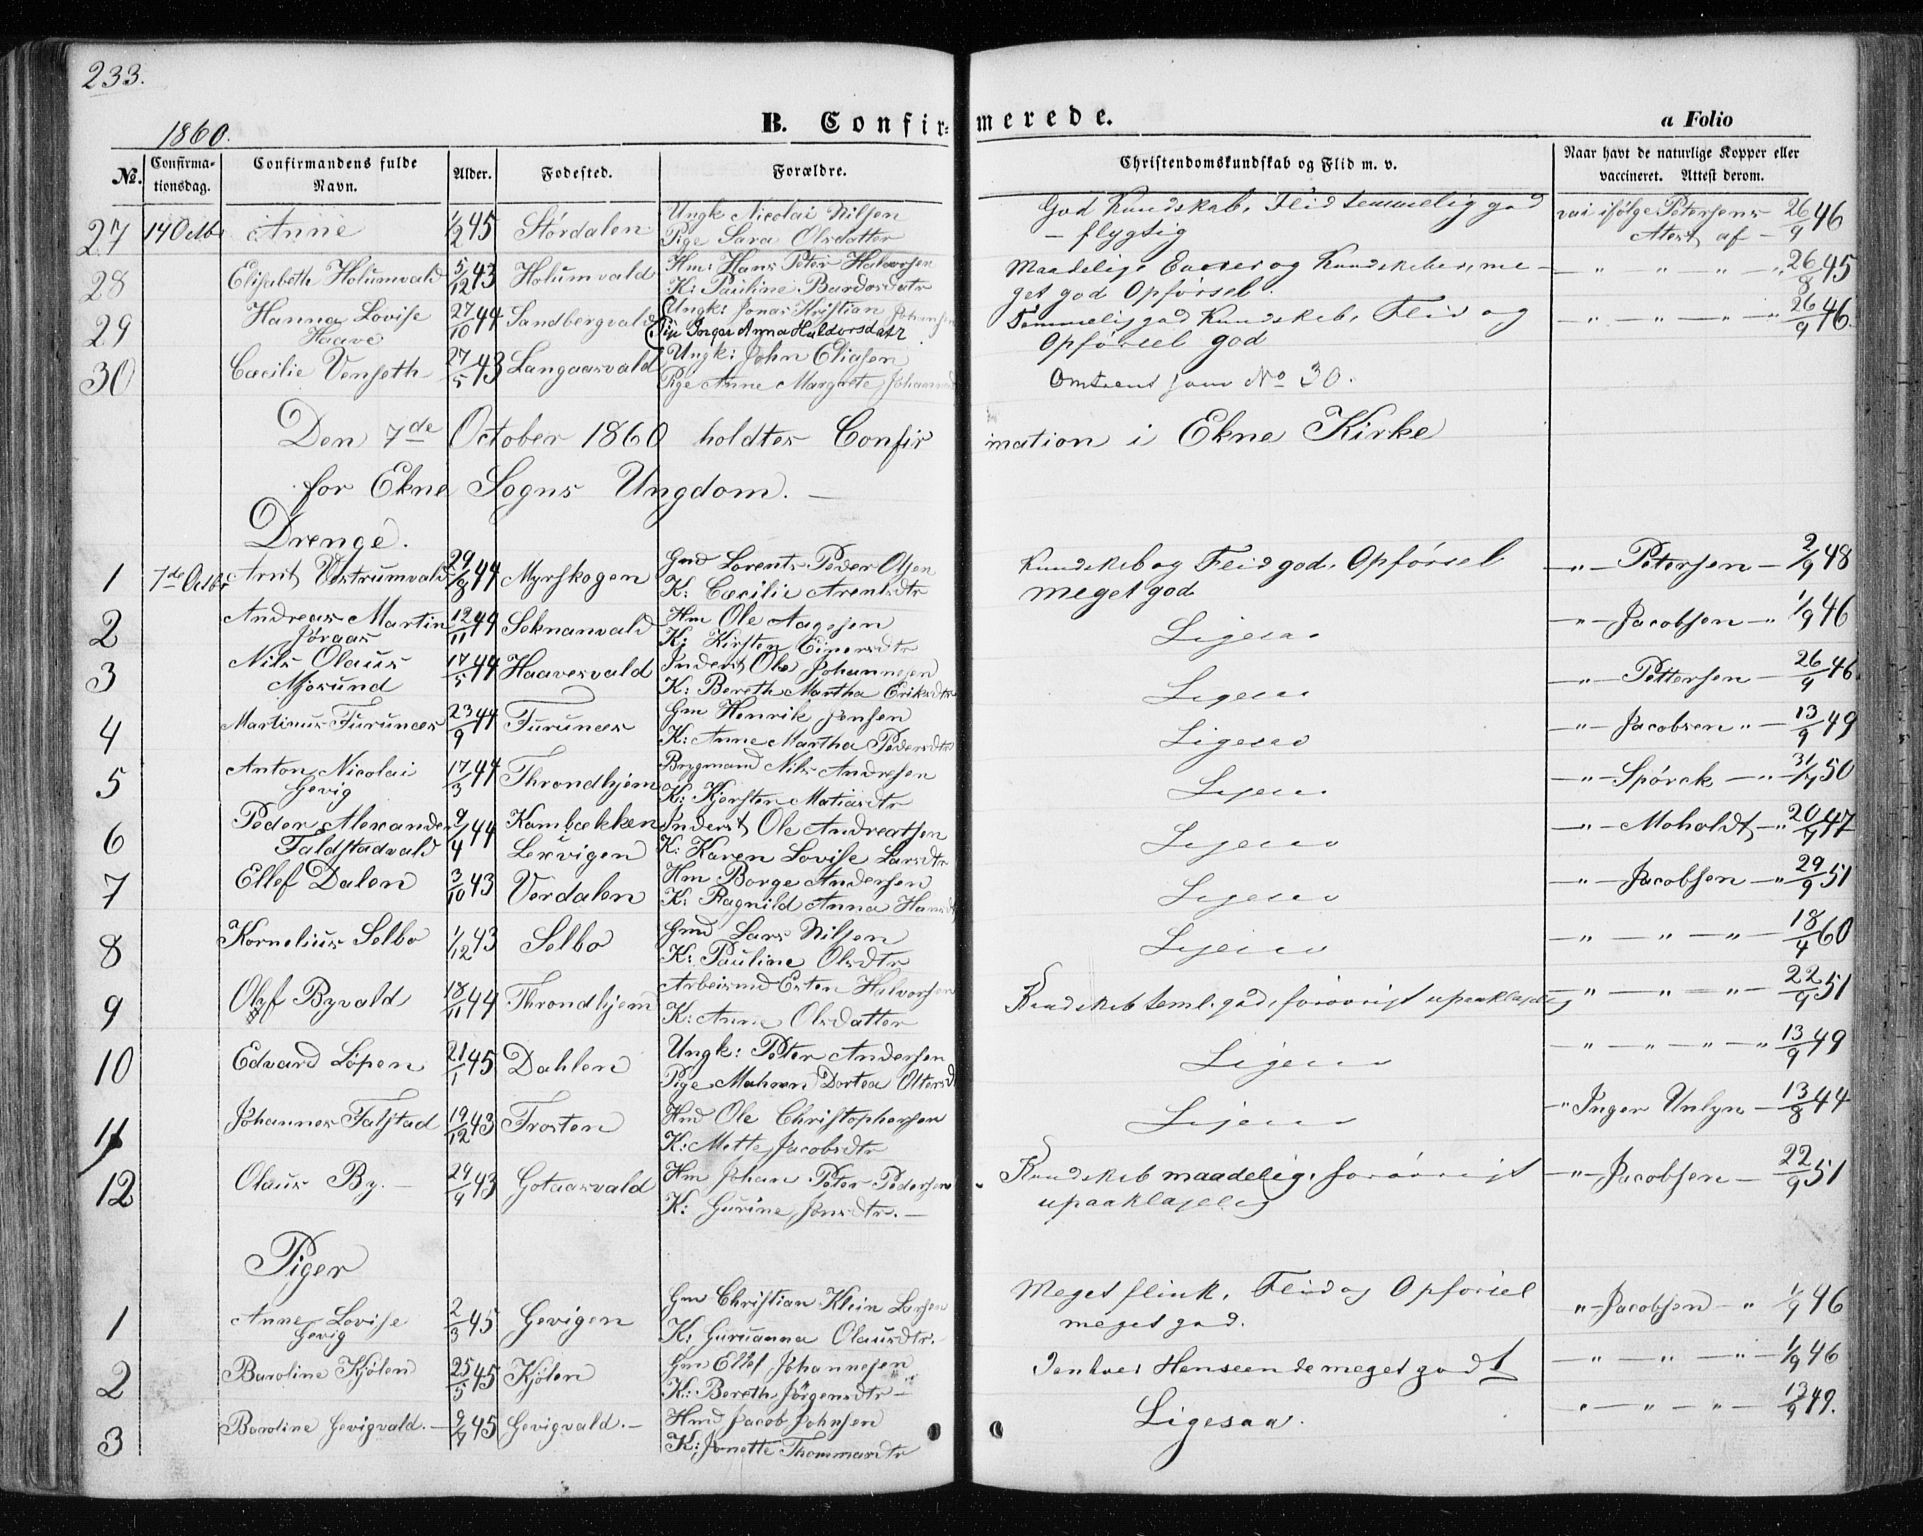 233.
1860.
B. Confirmerede.
a Folio
No. Confirmationsdag. Confirmandens fulde Navn. Alder. Fødested. Forældre. Christendomskundskab og Flid m. v. Naar havt de naturlige Kopper eller vaccineret. Attest derom.
27 14 Octbr Anne 1/2 45 Stördalen Ungk Nicolai Nilsen
Pige Sara Olsdatter God Kundskab, Flid temmelig god
- flygtig vai ifölge Petersens Atest af - 26/9 46
28 Elisabeth Holumvald 5/12 43 Holumvald Hm: Hans Peter Halvorsen
K: Pauline Bardosdatr Maadelige Evner og Kundskaber, me-
get god Opførsel. - " - " - " - " 26/8 45
29 Hanna Lovise
Haave 27/10 44 Sandbergvald Ungk: Jonas Kristian Johansen
Pige Inger Anna Haldorsdatr Temmelig god Kundskab, Flid og
Opførsel god - " - " - " - 26/9 46.
30 Cæcilie Venseth 27/5 43 Langaasvald Ungk: John Eliasen
Pige Anne Margrete Johannesd Omtrent som No 30.
Den 7de October 1860 holdtes Confirmation i Ekne Kirke
for Ekne Sogns Ungdom. -
Drenge.
1 7de Octbr Arnt Vestrumvald 29/8 44 Myrskogen Gmd Lorents Peder Olsen
K: Cæcilie Arentsdtr Kundskab og Flid god, Opførsel
meget god - " - Petersen - 2/9 48
2 Andreas Martin
Jøraas 12/11 44 Seknanvald Hm Ole Aagesen
K: Kirsten Einersdtr Ligesaa - " - Jacobsen - " 1/9 46
3 Nils Olaus
Mosund 17/5 44 Haavesvald Inderst Ole Johannesen
K: Bereth Martha Eriksdtr Ligesaa - " - Pettersen - 26/9 46
4 Martinus Furunæs 23/9 44 Furunæs Gm Henrik Jensen
K: Anne Martha Pedersdtr Ligesaa " - Jacobsen " - 13/9 49
5 Anton Nicolai
Gevig 17/3 44 Throndhjem Brygmand Nils Andresen
K: Kjersten Matiasdtr Ligesaa - " - Spörck - " 31/7 50
6 Peder Alexander
Faldstadvald 9/4 44 Kambækken
i Lexvigen Inderst Ole Andreassen
K: Karen Lovise Larsdtr Ligesaa - " - Moholdt - " 20/9 47
7 Ellef Dalen 3/10 43 Verdalen Hm Borge Andersen
K: Ragnild Anna Hansdt Ligesaa - " - Jacobsen - " 29/9 51
8 Kornelius Selbo 1/12 43 Selbo Gmd Lars Nilsen
K: Pauline Olsdtr Ligesaa - " - " - " - 18/4 60
9 Oluf Byvald 18/11 44 Throndhjem Arbeismd Esten Halvorsen
K: Anne Olsdatter Kundskab teml. god, forøvrigt upaaklagelig - " - " - " - 22/9 51
10 Edvard Löpen 21/1 45 Dahlen Ungk: Peter Andersen
Pige Mahren Dortea Oltersd Ligesaa - " - " - " 13/9 49
11 Johannes Falstad 19/12 43 Frosten Hmd Ole Christophersen
K: Mette Jacobsdtr Ligesaa - " Inger Unlyn - 13/8 44
12 Olaus By. - 24/4 43 Gotaasvald Hm Johan Peter Pedersen
K: Gurine Jonsdtr. - Kundskab maadelig, forøvrigt
upaaklagelig - " - Jacobsen - 22/9 51
Piger
1 Anne Lovise
Gevig 2/3 45 Gevigen Gm Christian Klein Larsen
K: Guruanna Olausdtr. Meget flink, Flid og Opførsel
meget god. " - Jacobsen - " 1/9 46
2 Baroline Kjølen 25/5 45 Kjølen Gm Ellef Johannesen
K: Bereth Jörgensdtr - I enhver Henseende meget godt - " - " - " - 1/9 46
3 Baroline Gevigvald. - 9/7 45 Gevigvald. - Hmd Jacob Johnsen
K: Jonette Thommasdtr Ligesaa. " - " - " - 13/9 49.